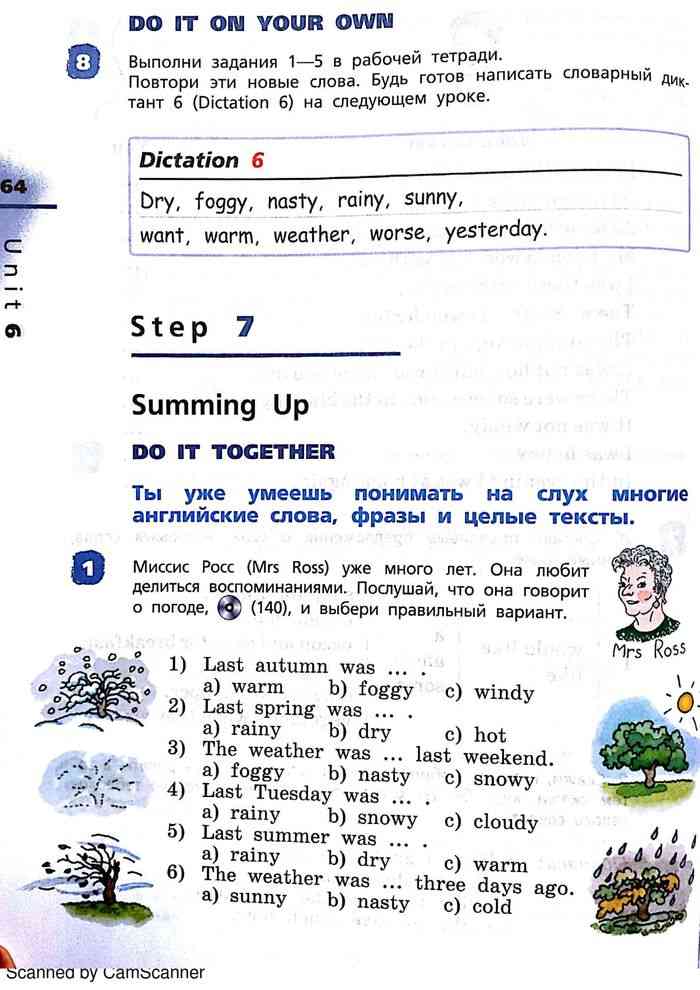 DO IT ON YOUR OWN
8 Выполни задания 1—5 в рабочей тетради.
Повтори эти новые слова. Будь готов написать словарный дик-
тант 6 (Dictation 6) на следующем уроке.
Dictation 6
Dry, foggy, nasty, rainy, sunny,
want, warm, weather, worse, yesterday.
64
Unit 6
Step 7
Summing Up
DO IT TOGETHER
Ты уже умеешь понимать на слух многие
английские слова, фразы и целые тексты.
1 Миссис Росс (Mrs Ross) уже много лет. Она любит
делиться воспоминаниями. Послушай, что она говорит
о погоде, (140), и выбери правильный вариант.
Mrs Ross
1) Last autumn was ... .
a) warm b) foggy c) windy
2) Last spring was ... .
a) rainy b) dry c) hot
3) The weather was ... last weekend.
a) foggy b) nasty c) snowy
4) Last Tuesday was ... .
a) rainy b) snowy c) cloudy
5) Last summer was ... .
a) rainy b) dry c) warm
6) The weather was ... three days ago.
a) sunny b) nasty c) cold
Scanned by CamScanner